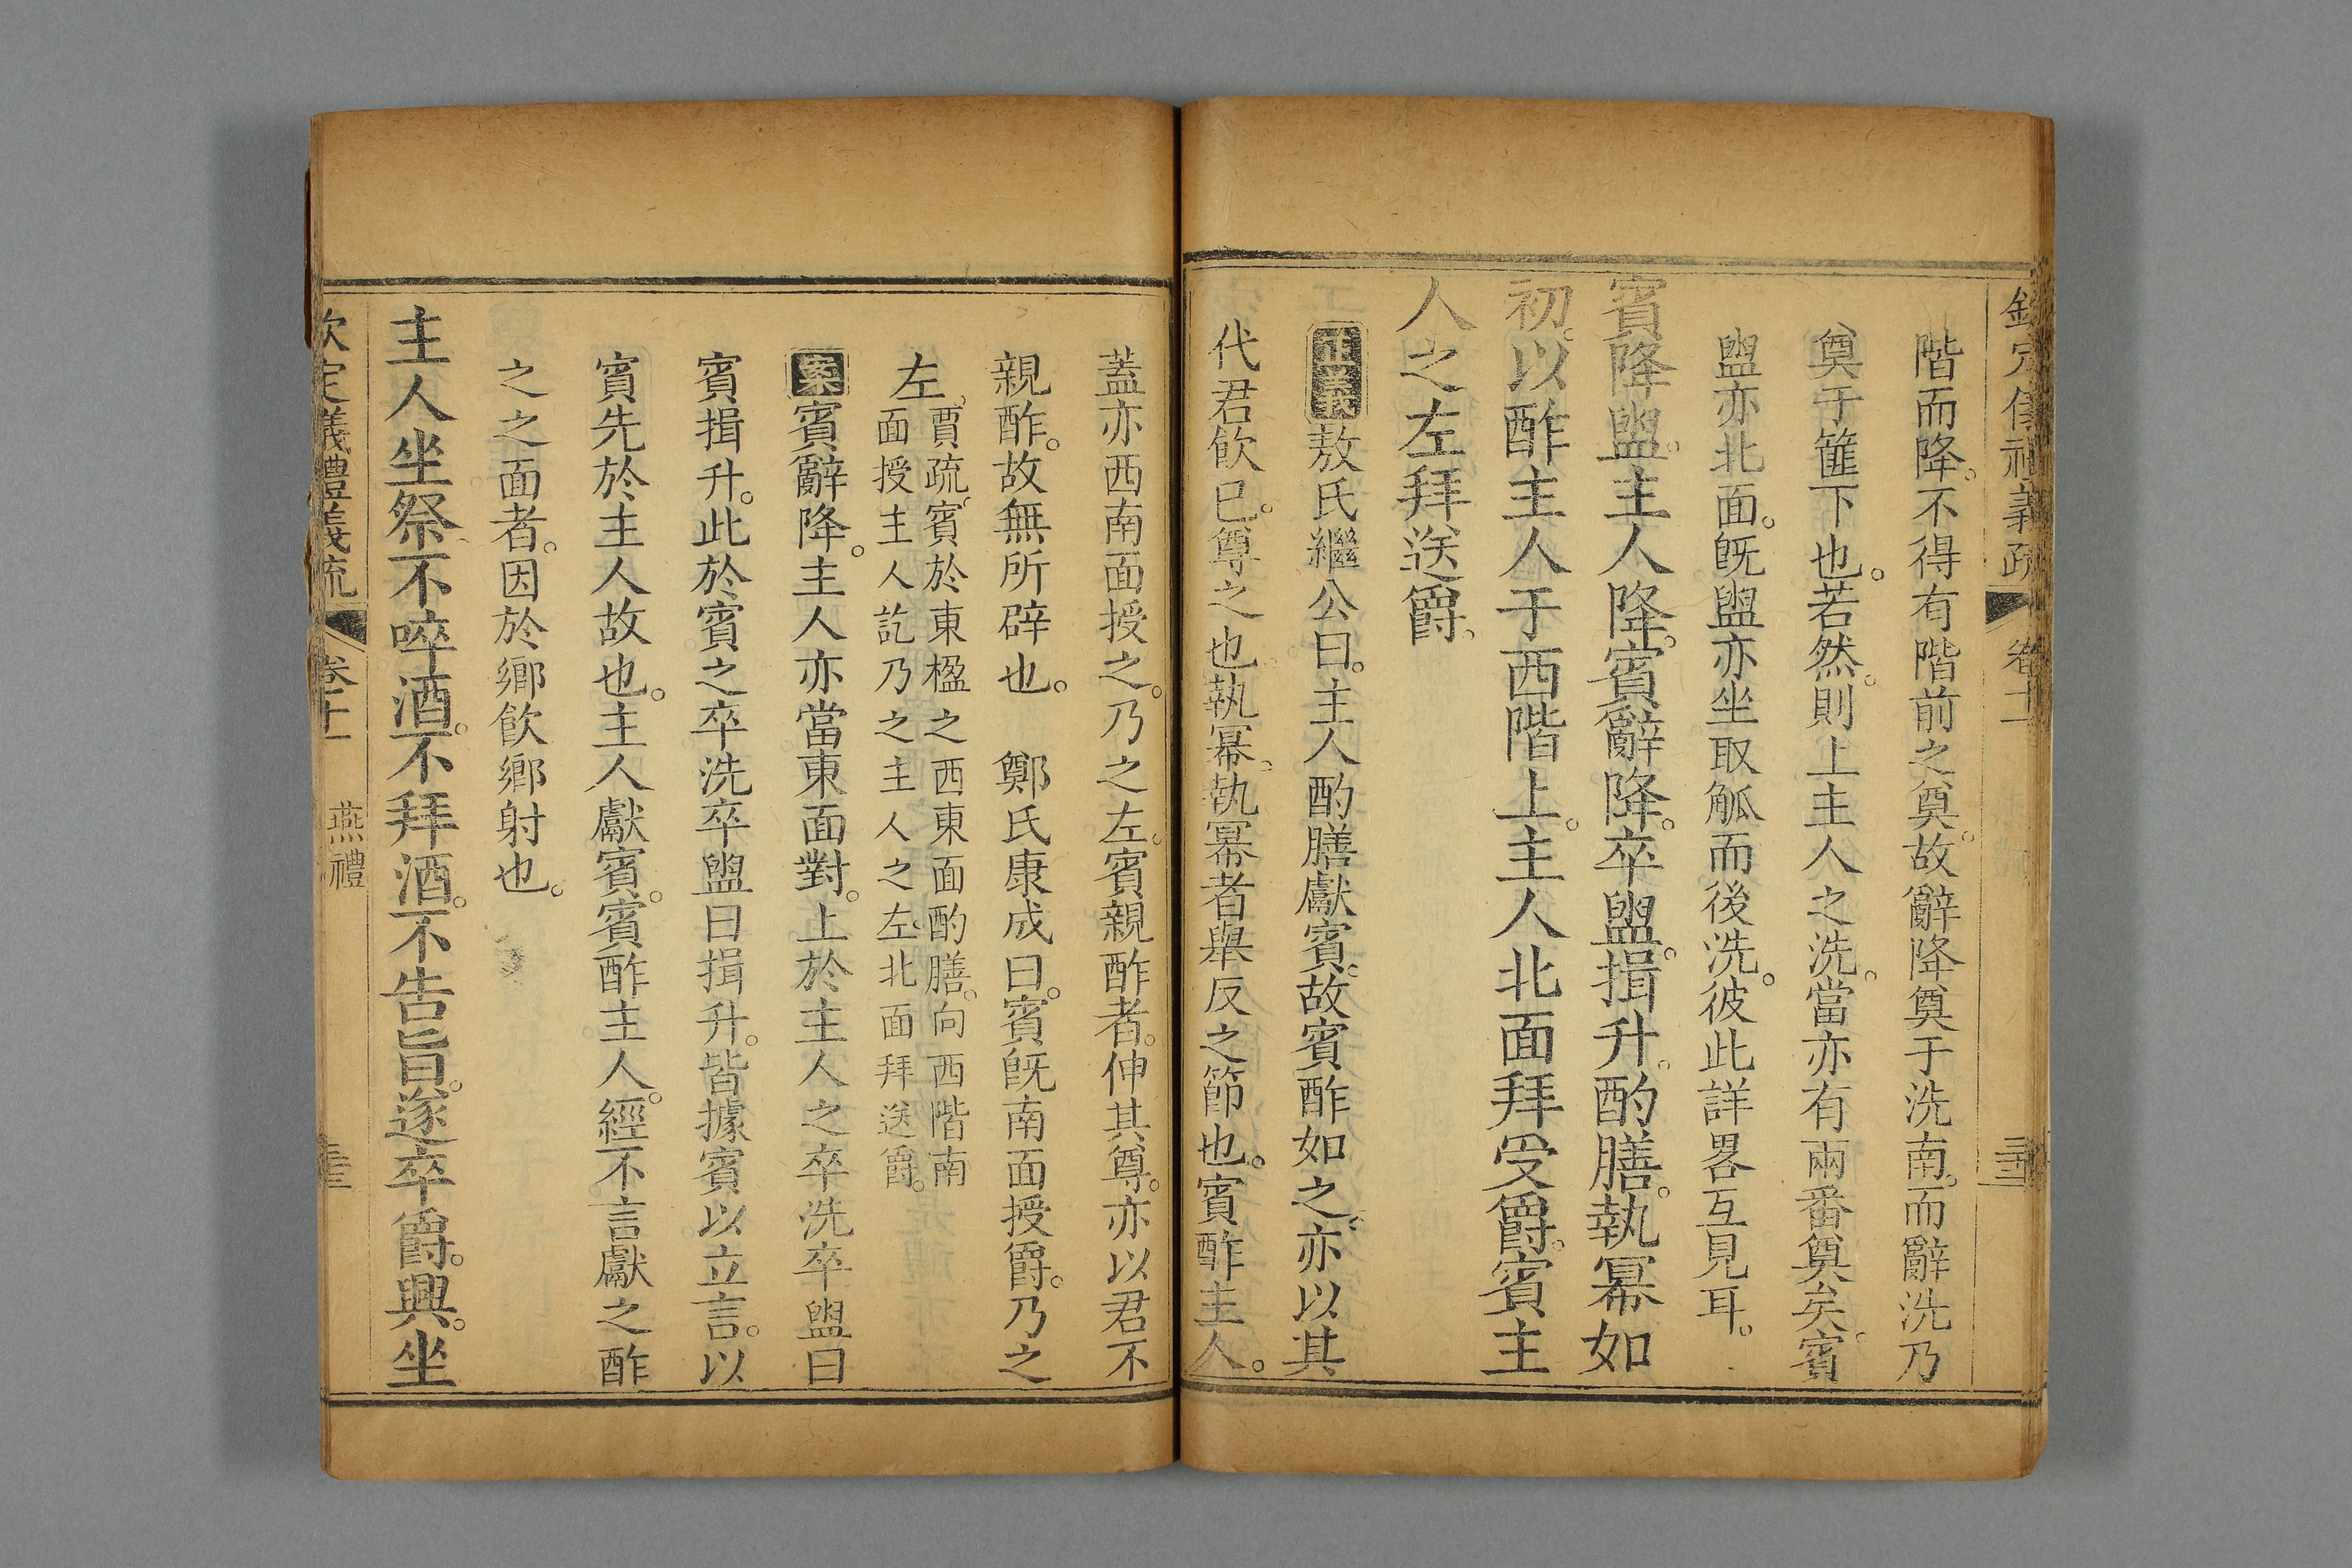 欽定儀禮義疏 卷十一
階而降。不得有階前之奠。故辭降奠于洗南。而辭洗乃
奠于篚下也。若然。則上主人之洗。當亦有兩番奠矣。賓
盥亦北面。旣盥亦坐取觚而後洗。彼此詳畧互見耳。
賓降盥。主人降。賓辭降。卒盥。揖升。酌膳。執冪如
初。以酢主人于西階上。主人北面拜受爵。賓主
人之左拜送爵。
正義敖氏繼公曰。主人酌膳獻賓。故賓酢如之。亦以其
代君飮已。尊之也。執冪。執冪者舉反之節也。賓酢主人。
蓋亦西南面授之。乃之左。賓親酢者。伸其尊。亦以君不
親酢。故無所辟也。 鄭氏康成曰。賓旣南面授爵。乃之
左。
賈疏。賓於東楹之西東面酌膳。向西階南
面授主人訖乃之主人之左。北面拜送爵。
案賓辭降。主人亦當東面對。上於主人之卒洗卒盥曰
賓揖升。此於賓之卒洗卒盥曰揖升。皆據賓以立言。以
賓先於主人故也。主人獻賓。賓酢主人。經不言獻之酢
之之面者。因於鄉飮鄉射也。
主人坐祭。不啐酒。不拜酒。不告旨。遂卒爵。興。坐
欽定儀禮義疏 卷十一 燕禮